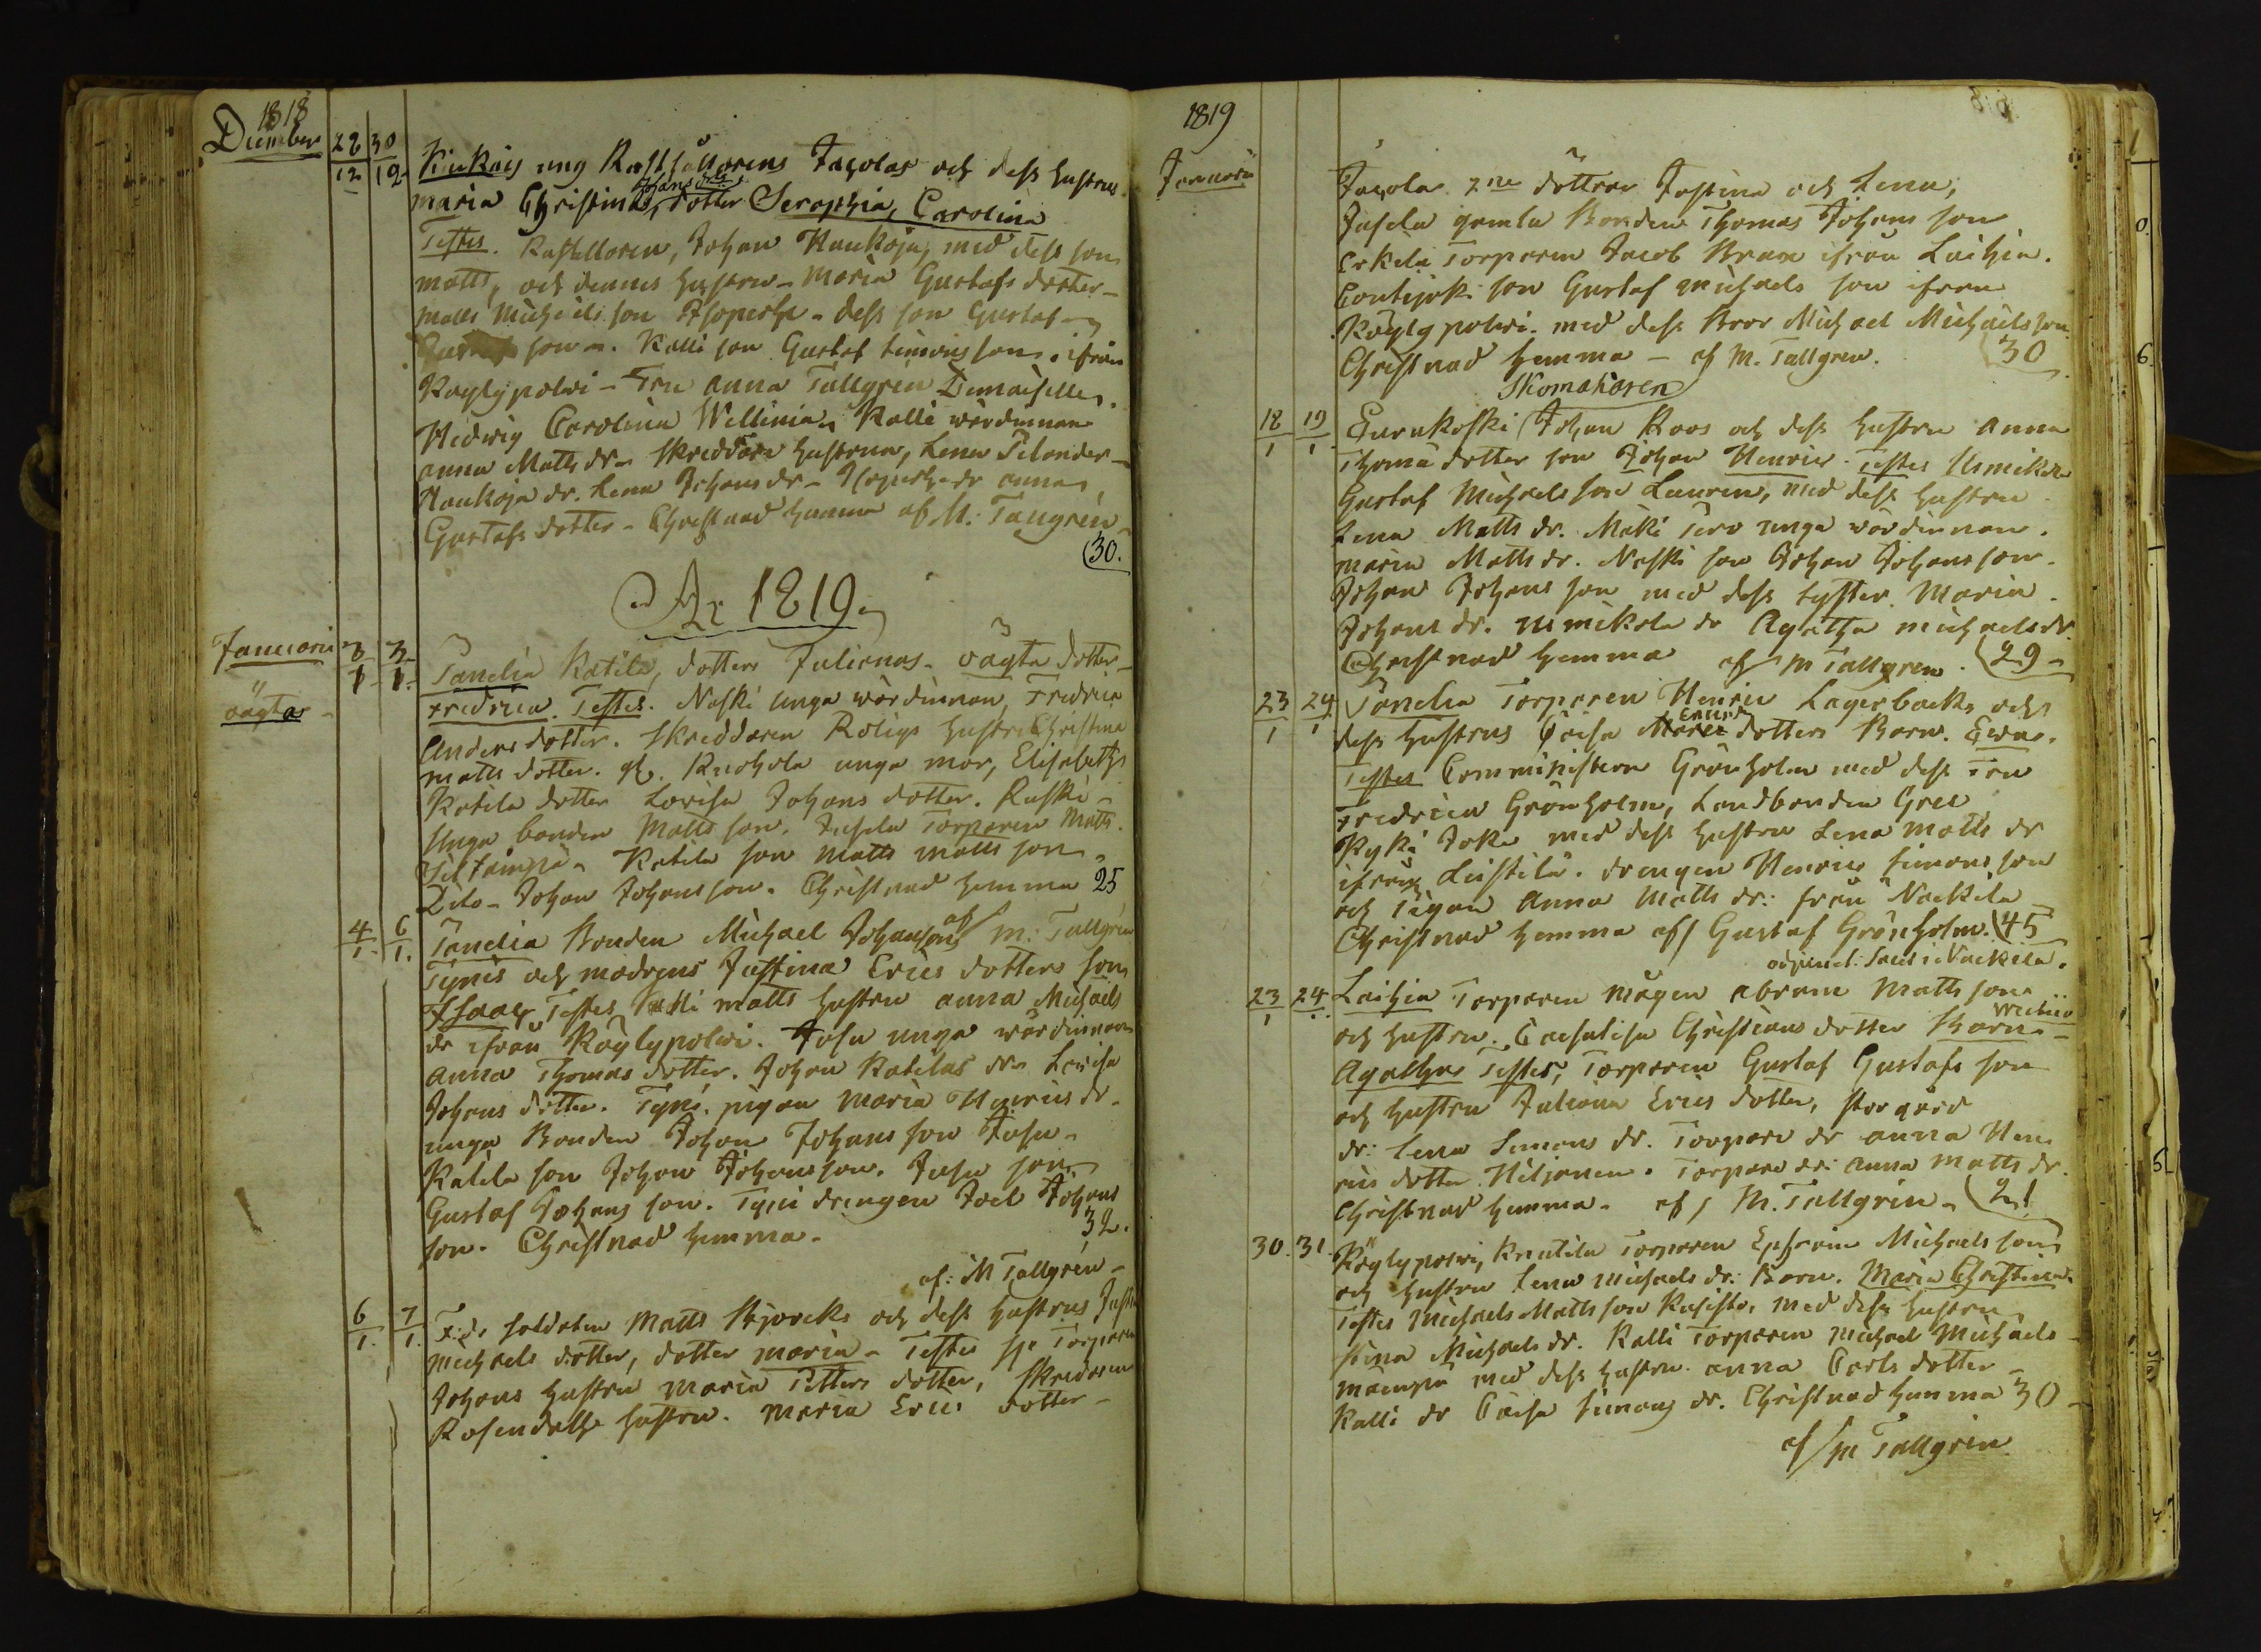 1818
December
28 30
12 12
Kiukais ung Rusthållarens Jaçolas och dess hustrus
Johans dr
Maria Christina, dotter Seraphia, Carolina
Testes. Rusthållaren, Johan Haukoja, med dess son
Matts, och dennes hustru - Maria Gustafs dotter -
Matts Michaels son - dess son Gustaf
son. Kalli son Gustaf Simons son. ifrån
Köylypolvi - Fru Anna Tallgren Demoiselle
Hedwig Carolina Wellinia, Kalli wärdinnan
Anna Matts dr - Skreddare hustrun, Lena Selander -
Haukoja dr. Lena Johans dr - dr Anna
Gustafs dotter - Christnad hemma af M. Tallgren
(30.
Ar 1819
Januarii
3 3
1 1
oägta
Panelia Katila, dotters Julianas - oägta dotter -
Fredrica. Testes. Naski unga wärdinnan, Fredrica
Anders dotter. Skreddaren Roligs hustru Christina
Matts dotter. unga mor, Elisabeth
Katila dotter Lovisa Johans dotter. Raski
Unga bonden Matts son. Jusela Torparen Matts
Katila son Matts Matts son
Dito - Johan Johansson. Christnad hemma 25
4 6
1 1
af M. Tallgren
Panelia Bonden Michael Johansons
Tynis och modrens Justina Erics dotters son
Isaac, Testes, Kalli Matts hustru Anna Michaels
dr ifrån Köylypolvi. Jusu unga wärdinnan
Anna Thomas dotter. Johan Katilas dr Lovisa
Johans dotter. Tyni pigan Maria Henrics dr.
unga Bonden Johan Johans son Jusu
Katila son Johan Johansson. Jusu son
Gustaf Johans son. Tyni drengen Joel Johans
son. Christnad hemma - 32.
af: M Tallgren -
6 7
1 1
F.d. soldaten Matts Skjorcks och dess hustrus Justina
Michaels dotter, dotter Maria - Testes Torparen
Johans hustru Maria Petters dotter, Skredaren
Rosendahls hustru. Maria Erics dotter -
1819
Januarii
Jaçola 2ne döttrar Justina och Lena,
Jusela gamla Bonden Thomas Johans son
Erkola Torparen Jacob Brax ifrån Laihia.
son Gustaf Michaels son ifrån
Köylypolvi. med dess Bror Michael Michaels son
Christnad hemma - af M. Tallgren. (30
Skomakaren
18 19
1 1
Eurakoski Johan Roos och dess hustru Anna
Thoma dotter son Johan Henric - Testes Unnikola
Gustaf Michaels son Lauren, med dess hustru
Lena Matts dr. Mäki Tero unga wärdinnan.
Maria Matts dr. Naski son Johan Johans son
Johan Johans son med dess syster Maria
Johans dr. Unnikola dr Agatha Michaels dr
Christnad hemma af M Tallgren. (29 -
23 24
1 1
Panelia Torparen Henric Lagerbacks och
Erics
dess hustrus Caisa dotters Barn. Ewa.
Testes Comministern Grönholm med dess Fru
Fredrica Grönholm, Landbonden Grels
Kyki Joka med dess hustru Lena Matts dr
ifrån Leistilä. drengen Henric Simons son
och Pigan Anna Matts dr: från Nackila
Christnad hemma af Gustaf Grönholm. (45
adjunct: Sacri: i Nackila.
23 24
1 1
Laihia Torparen mågen Abram Matts son
och hustru. Caisalisa Christians dotter Barn
Agatha Testes, Torparen Gustaf Gustafs son
och hustru Juliana Erics dotter, storgård
dr: Lena Simons dr. Torpare dr Anna Hen
rics dotter Hiljanen. Torpare dr: Anna Matts dr.
Christnad hemma. af M. Tallgren. (21
30. 31.
Köylypolvi, Knutila Torparen Ephraim Michaels son
och hustru Lena Michaels dr: Barn. Maria Christina
Testes Michaels Matts son Kasisto, med dess hustru
Stina Michaels dr. Kalli Torparen Michael Michaels
med dess hustru. Anna Carls dotter -
Kalli dr Caisa Simons dr. Christnad hemma 30
af M Tallgren